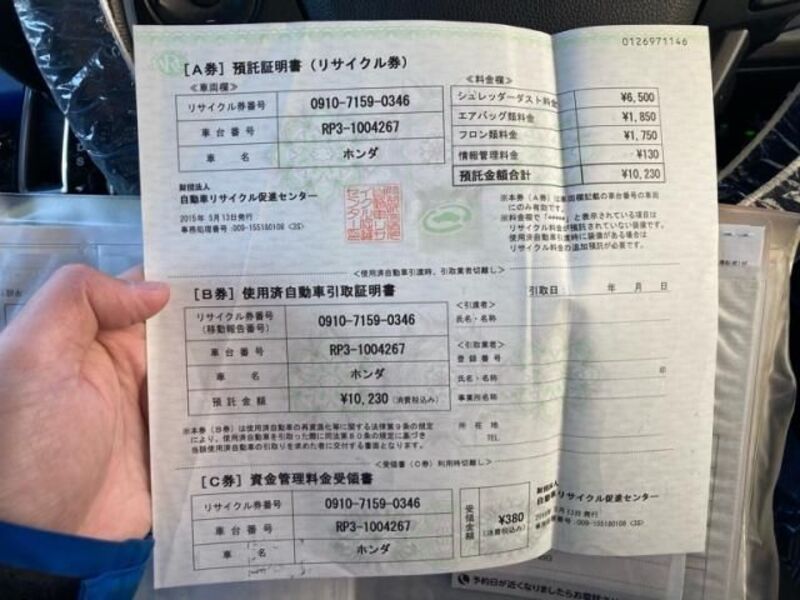 0126971146
[A券] 預託証明書（リサイクル券）
≪車両欄≫
リサイクル券番号 0910-7159-0346
車台番号 RP3-1004267
車名 ホンダ
≪料金欄≫
シュレッダーダスト料金 ¥6,500
エアバッグ類料金 ¥1,850
フロン類料金 ¥1,750
情報管理料金 ¥130
預託金額合計 ¥10,230
財団法人
自動車リサイクル促進センター
2015年 5月13日発行
事務処理番号:009-155180108 <3S>
※本券（A券）は車両欄記載の車台番号の車両
にのみ有効です。
※料金欄で「*****」と表示されている項目は
リサイクル料金が預託されていない装備です。
使用済自動車引渡時に装備がある場合は
リサイクル料金の追加預託が必要です。
<使用済自動車引渡時、引取業者切離し>
[B券] 使用済自動車引取証明書
引取日: 年 月 日
リサイクル券番号
(移動報告番号) 0910-7159-0346
車台番号 RP3-1004267
車名 ホンダ
預託金額 ¥10,230 (消費税込み)
<引渡者>
氏名・名称
<引取業者>
登録番号
氏名・名称 印
事業所名称
所在地
TEL
※本券（B券）は使用済自動車の再資源化等に関する法律第9条の規定
により、使用済自動車を引取った際に同法第80条の規定に基づき
当該使用済自動車の引取りを求めた者に交付する書面となります。
<受領書（C券）利用時切離し>
[C券] 資金管理料金受領書
リサイクル券番号 0910-7159-0346
車台番号 RP3-1004267
車名 ホンダ
受領金額 ¥380
(消費税込み)
財団法人
自動車リサイクル促進センター
2015年 5月13日発行
事務処理番号:009-155180108 <3S>
予約日が近くなりましたらお電話